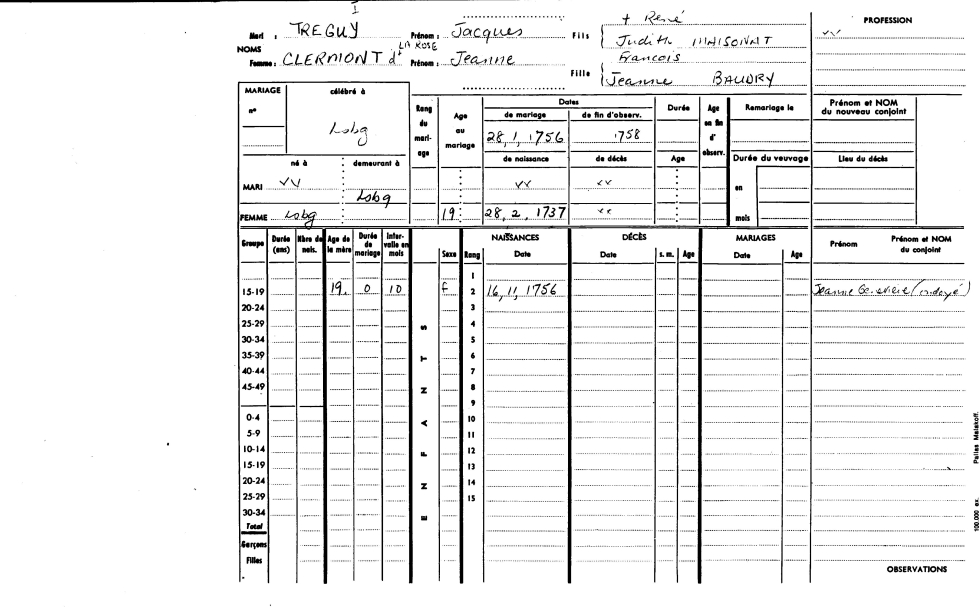 I
+ René PROFESSION
Mari : TREGUY Prénom : Jacques Fils Judith MAISONNAT vv
NOMS LA ROSE
Femme : CLERMONT dt Prénom : Jeanne Francois
Fille Jeanne BAUDRY
MARIAGE célébré à Rang du mari- age Age au mariage Dates Durée Age en fin d' observ. Remariage le Prénom et NOM du nouveau conjoint
n° de mariage de fin d'observ.
Lsbg 28, 1, 1756 1758
né à demeurant à de naissance de décès Age Durée du veuvage Lieu du décès
MARI vv Lsbg vv vv en
FEMME Lsbg 19 28, 2, 1737 vv mois
Groupe Durée (ans) Nbre de nais. Age de la mère Durée de mariage Inter- valle en mois Sexe Rang NAISSANCES Date DÉCÈS Date s. m. Age MARIAGES Date Age Prénom Prénom et NOM du conjoint
1
15-19 19. 0 10 f 2 16, 11, 1756 Jeanne (ondoyé)
20-24 3
25-29 S 4
30-34 5
35-39 T 6
40-44 7
45-49 N 8
9
0-4 A 10
5-9 11
10-14 F 12
15-19 13
20-24 N 14
25-29 15
30-34 E
Total
Garçons
Filles
OBSERVATIONS
100.000 ex. Pallas Malakoff.